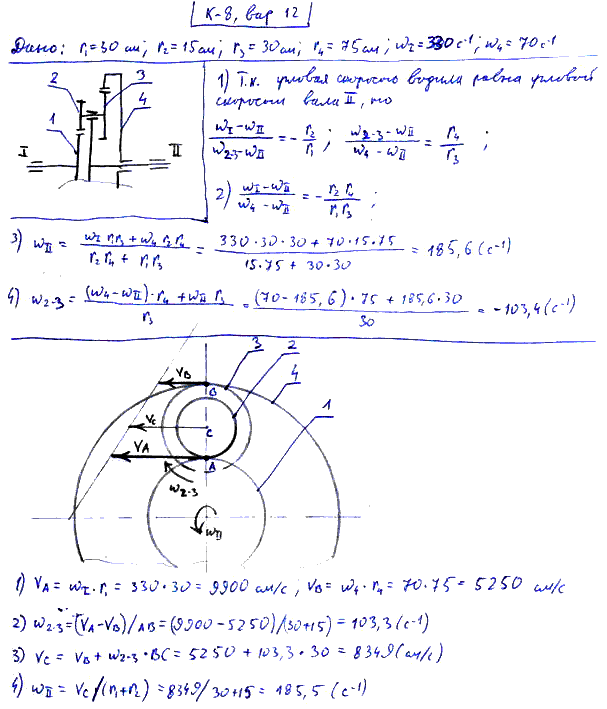 К-8, вар 12
Дано: r₁=30 см; r₂=15см; r₃=30см; r₄=75см; ω_I=330с⁻¹; ω₄=70с⁻¹
2 3 4 1 I II
1) Т.к. угловая скорость водила равна угловой
скорости вала II, то
(ω_I-ω_II)/(ω₂₋₃-ω_II) = -r₂/r₁; (ω₂₋₃-ω_II)/(ω₄-ω_II) = r₄/r₃;
2) (ω_I-ω_II)/(ω₄-ω_II) = -(r₂ r₄)/(r₁ r₃);
3) ω_II = (ω_I r₁r₃+ω₄ r₂r₄)/(r₂r₄+ r₁r₃) = (330·30·30+70·15·75)/(15·75+30·30) = 185,6 (с⁻¹)
4) ω₂₋₃ = ((ω₄-ω_II)·r₄+ω_II r₃)/r₃ = ((70-185,6)·75+185,6·30)/30 = -103,4 (с⁻¹)
3 2 4 1
V_B B
V_C C
V_A A
ω₂₋₃
ω_II
1) V_A = ω_I·r₁ = 330·30 = 9900 см/с; V_B = ω₄·r₄ = 70·75 = 5250 см/с
2) ω₂₋₃=(V_A-V_B)/AB=(9900-5250)/(30+15)=103,3 (с⁻¹)
3) V_C = V_B+ω₂₋₃·BC=5250+103,3·30=8349(см/с)
4) ω_II = V_C/(r₁+r₂)=8349/30+15= 185,5 (с⁻¹)